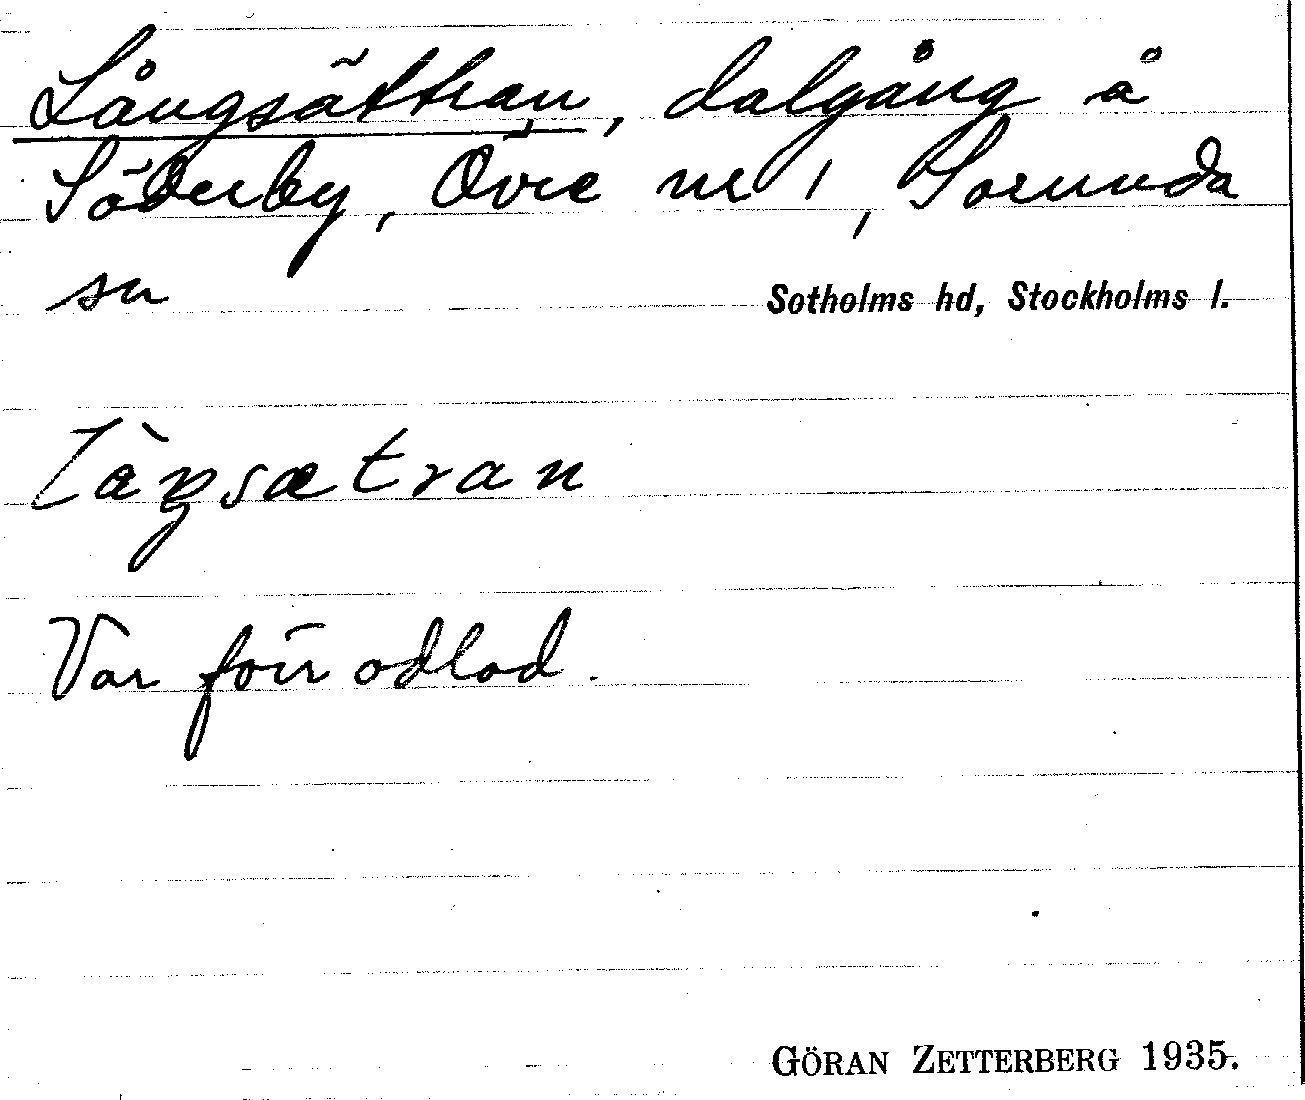 Långsättran, dalgång å
Söderby, Övre nr 1, Sorunda
sn
Sotholms hd, Stockholms l.
làŋsætran
Var förr odlad.
GÖRAN ZETTERBERG 1935.